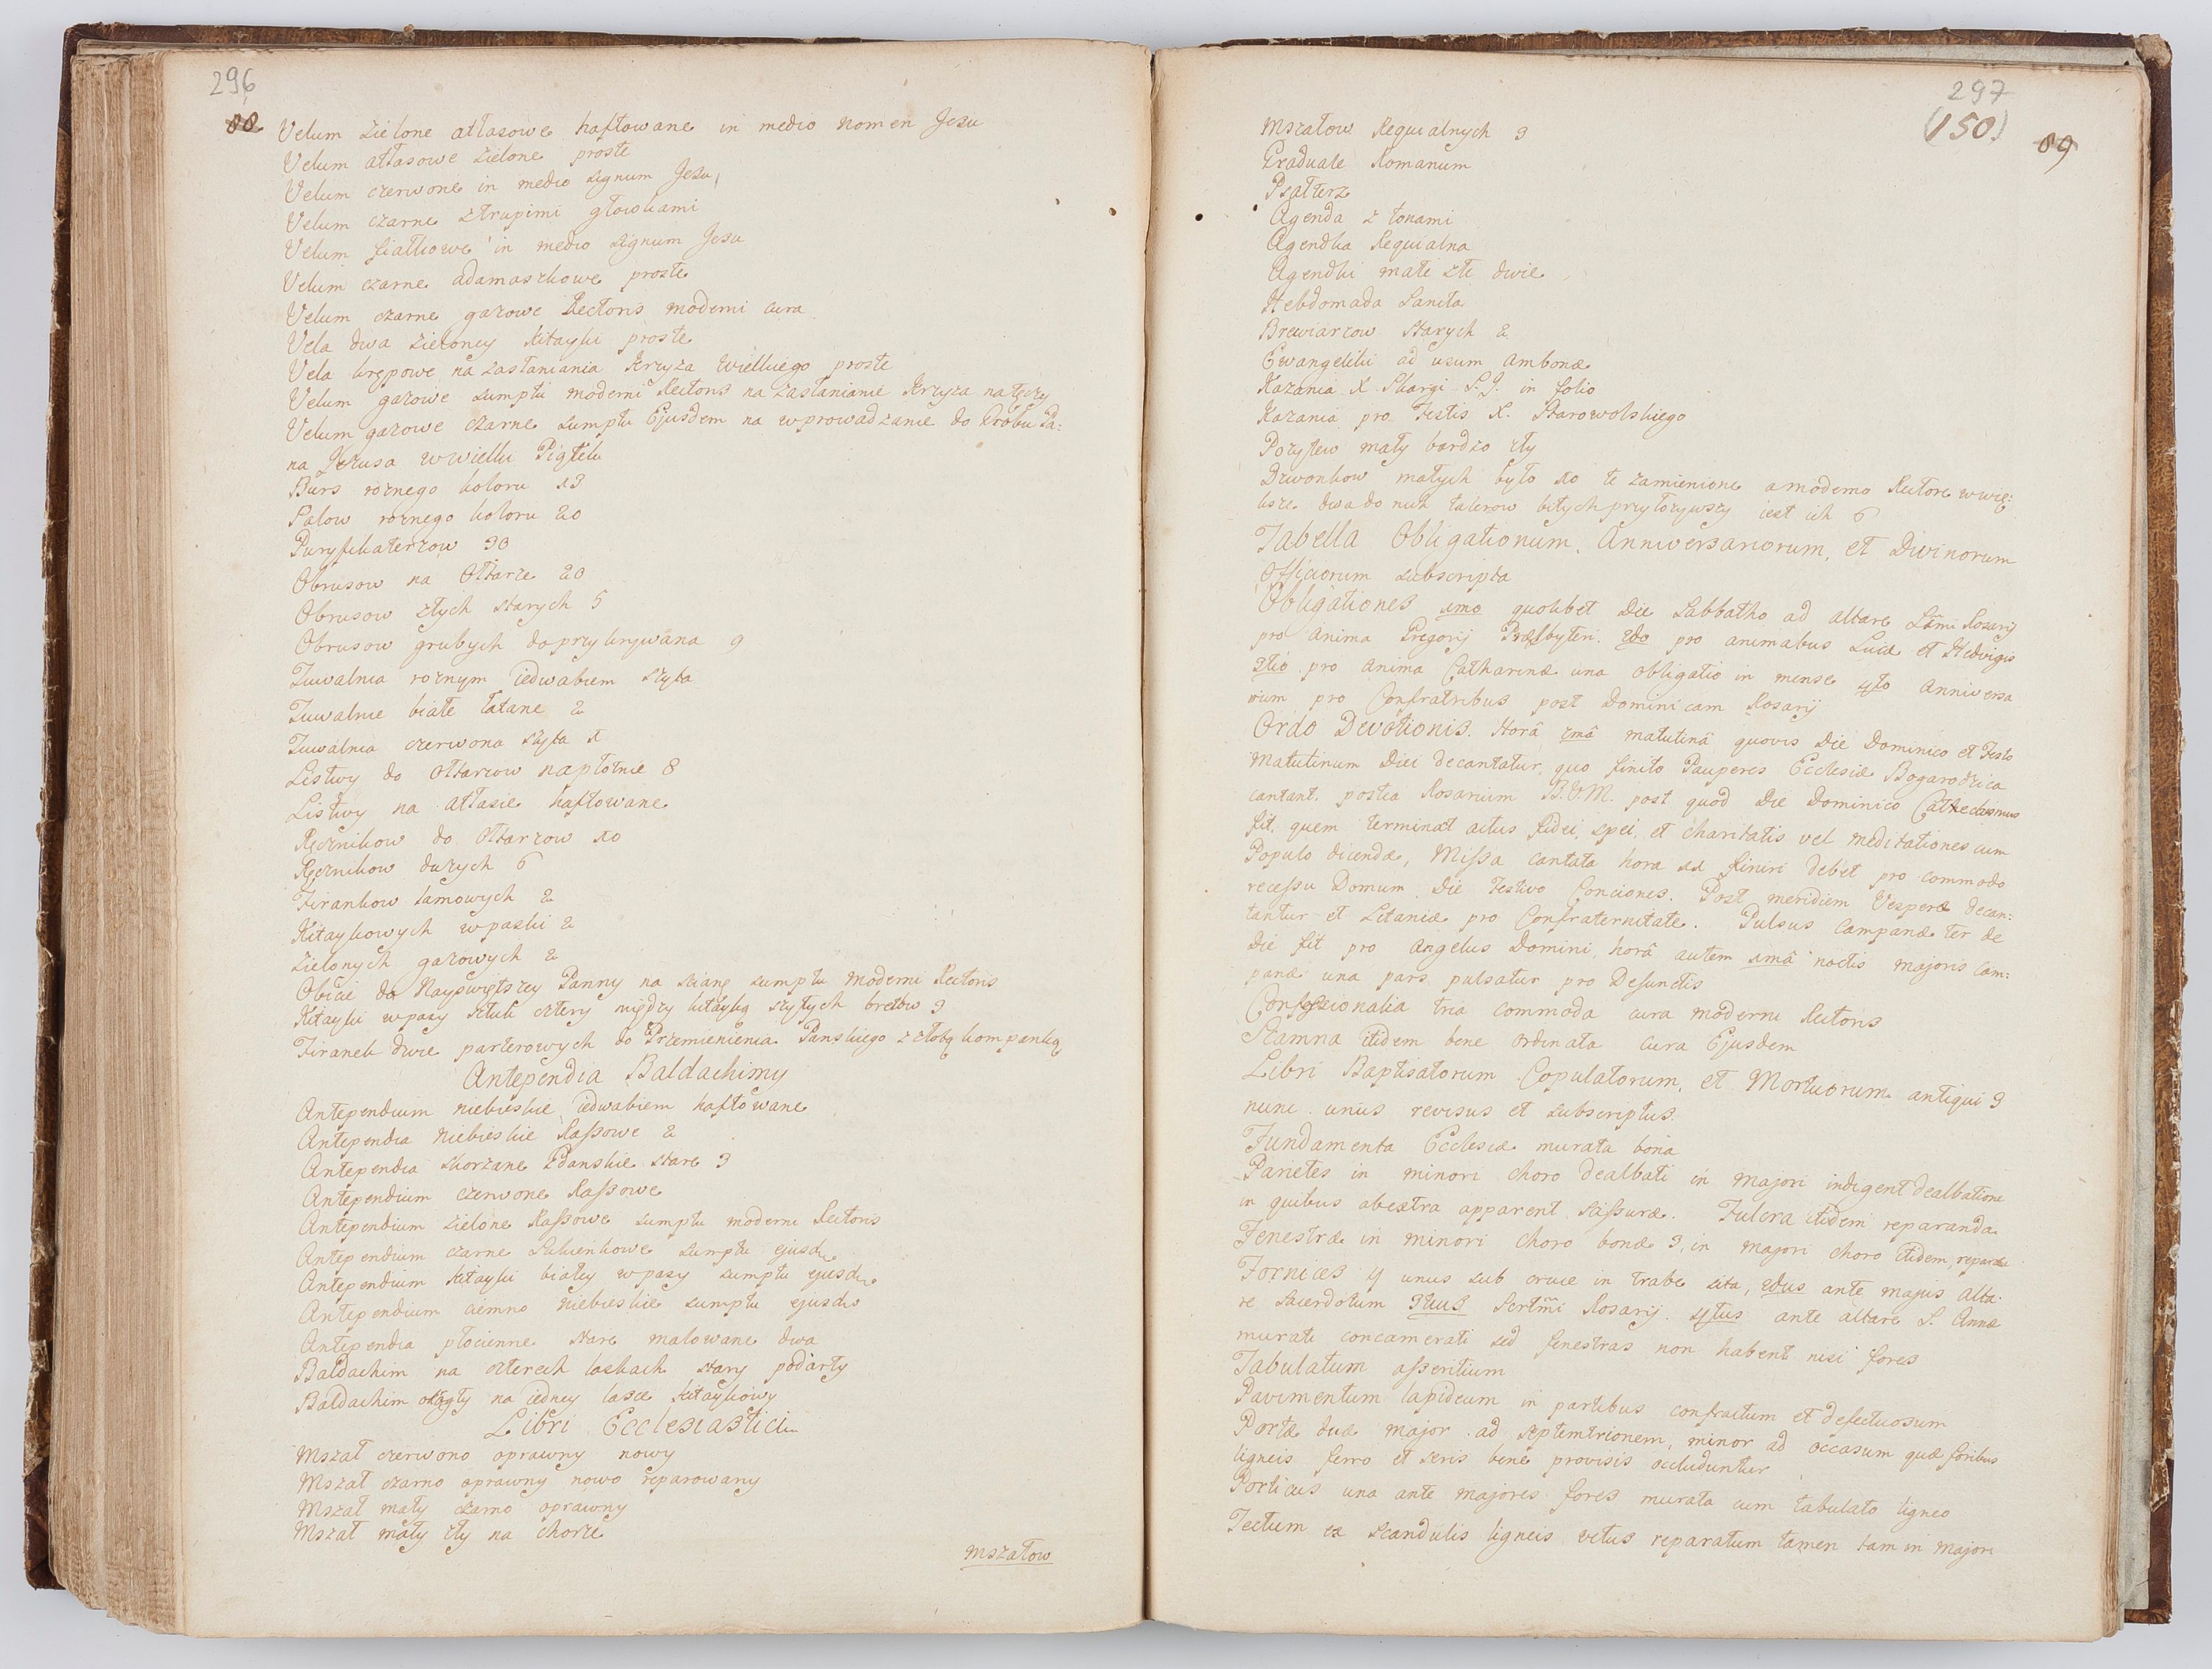 296
88
Velum zielone atłasowe haftowane in medio nomen Jesu
Velum atłasowe zielone proste
Velum czerwone in medio signum Jesu
Velum czarne ztrupimi głowkami
Velum fiałkowe in medio signum Jesu
Velum czarne adamaszkowe proste
Velum czarne gazowe Rectoris moderni cura
Vela dwa zieloney kitayki proste
Vela krępowe na zasłaniania krzyża wielkiego proste
Velum gazowe sumptu moderni Rectoris na zasłanianie krzyża na tęczy
Velum gazowe czarne sumptu Ejusdem na wprowadzanie do Grobu Pa:
na Jezusa wwielki Piątek
Burs roznego koloru 13
Palow roznego koloru 20
Puryfikaterzow 30
Obrusow na Ołtarze 20
Obrusow złych starych 5
Obrusow grubych do przykrywana 9
Tuwalnia roznym iedwabiem szyta
Tuwalnie białe łatane 2
Tuwalnia czerwona szyta 1
Listwy do ołtarzow napłotnie 8
Listwy na atłasie haftowane
Ręcznikow do Ołtarzow 10
Ręcznikow dużych 6
Firankow lamowych 2
Kitaykowych wpaski 2
Zielonych gazowych 2
Obicie do Nayswiętszey Panny na scianę sumptu moderni Rectoris
Kitayki wpasy sztuk cztery między kitayką szytych bretow 3
Firanek dwie parterowych do Przemienienia Panskiego z złotą kompanką
Antependia Baldachimy
Antependium niebieskie iedwabiem haftowane
Antependia niebieskie Rassowe 2
Antependia skorzane Gdanskie stare 3
Antependium czerwone Rassowe
Antependium zielone Rassowe sumptu moderni Rectoris
Antependium czarne Sukienkowe sumptu ejusd
Antependium kitayki białey wpasy sumptu ejusd
Antependium ciemno niebieskie sumptu ejusd
Antependia płocienne stare malowane dwa
Baldachim na czterech laskach stary podarty
Baldachim okrągły na iedney lasce kitaykowy
Libri Ecclesiastici
Mszał czerwono oprawny nowy
Mszał czarno oprawny nowo reparowany
Mszał mały czarno oprawny
Mszał mały zły na chorze
Mszałow
297
(150)
89
Mszałow Requialnych 3
Graduale Romanum
Psałterz
Agenda z tonami
Agendka Requialna
Agendki małe złe dwie
Hebdomada Sancta
Brewiarzow starych 2
Ewangeliki ad usum ambonæ
Kazania X. Skargi S.J. in folio
Kazania pro Festis X. Starowolskiego
Pozytew mały bardzo zły
Dzwonkow małych było 10 te zamienione a moderno Rectore wwię:
ksze dwa do nich talerow bitych przyłożywszy iest ich 6
Tabella Obligationum, Anniversariorum, et Divinorum
Officiorum subscripta
Obligationes 1mo quolibet Die Sabbatho ad altare Sãmi Rosarij
pro anima Gregorij Præsbyteri. 2do pro animabus Luciæ et Hedvigis
3tio pro anima Catharinæ una obligatio in mense 4to Anniversa
rium pro Confratribus post Dominicam Rosarij
Ordo Devotionis. Horâ 7mâ matutinâ quovis Die Dominico et Festo
Matutinum Diei decantatur, quo finito Pauperes Ecclesiæ Bogarodzica
cantant, postea Rosarium B.V.M. post quod Die Dominico Cathechismus
fit, quem terminat actus fidei, spei, et charitatis vel meditationes cum
Populo dicendæ, Missa cantata hora 12 finiri debet pro commodo
recessu Domum. Die Festivo Conciones. Post meridiem Vesperæ decan:
tantur et Litaniæ pro Confraternitate. Pulsus campanæ ter de
Die fit pro Angelus Domini, horâ autem 1mâ noctis majoris cam:
panæ una pars pulsatur pro Defunctis
Confessionalia tria commoda cura moderni Rectoris
Scamna itidem bene ordinata cura Ejusdem
Libri Baptisatorum Copulatorum, et Mortuorum antiqui 3
nunc unus revisus et subscriptus.
Fundamenta Ecclesiæ murata bona
Parietes in minori choro dealbati in majori indigent dealbatione
in quibus abextra apparent scissuræ. Fulcra itidem reparanda
Fenestræ in minori choro bonæ 3, in majori choro itidem reparatæ
Fornices 4 unus sub cruce in trabe sita, 2dus ante majus alta:
re sacerdotum 3tius Scrtm̃i Rosarij. 4tus ante altare S. Annæ
murati concamerati sed fenestras non habent nisi fores
Tabulatum asseritium
Pavimentum lapideum in partibus confractum et defectuosum
Portæ duæ major ad septemtrionem, minor ad occasum quæ foribus
ligneis ferro et seris bene provisis occluduntur
Porticus una ante majores fores murata cum tabulato ligneo
Tectum ex scandulis ligneis vetus reparatum tamen tam in majori